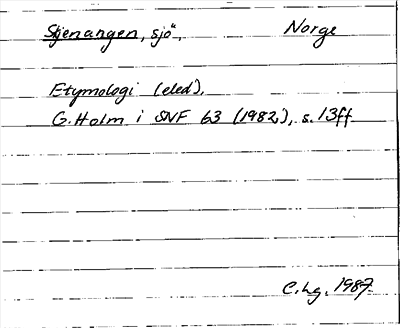 Stjenangen, sjö, Norge
Etymologi (eled),
G. Holm i SNF 63 (1982,), s. 13ff
C. Lg. 1987